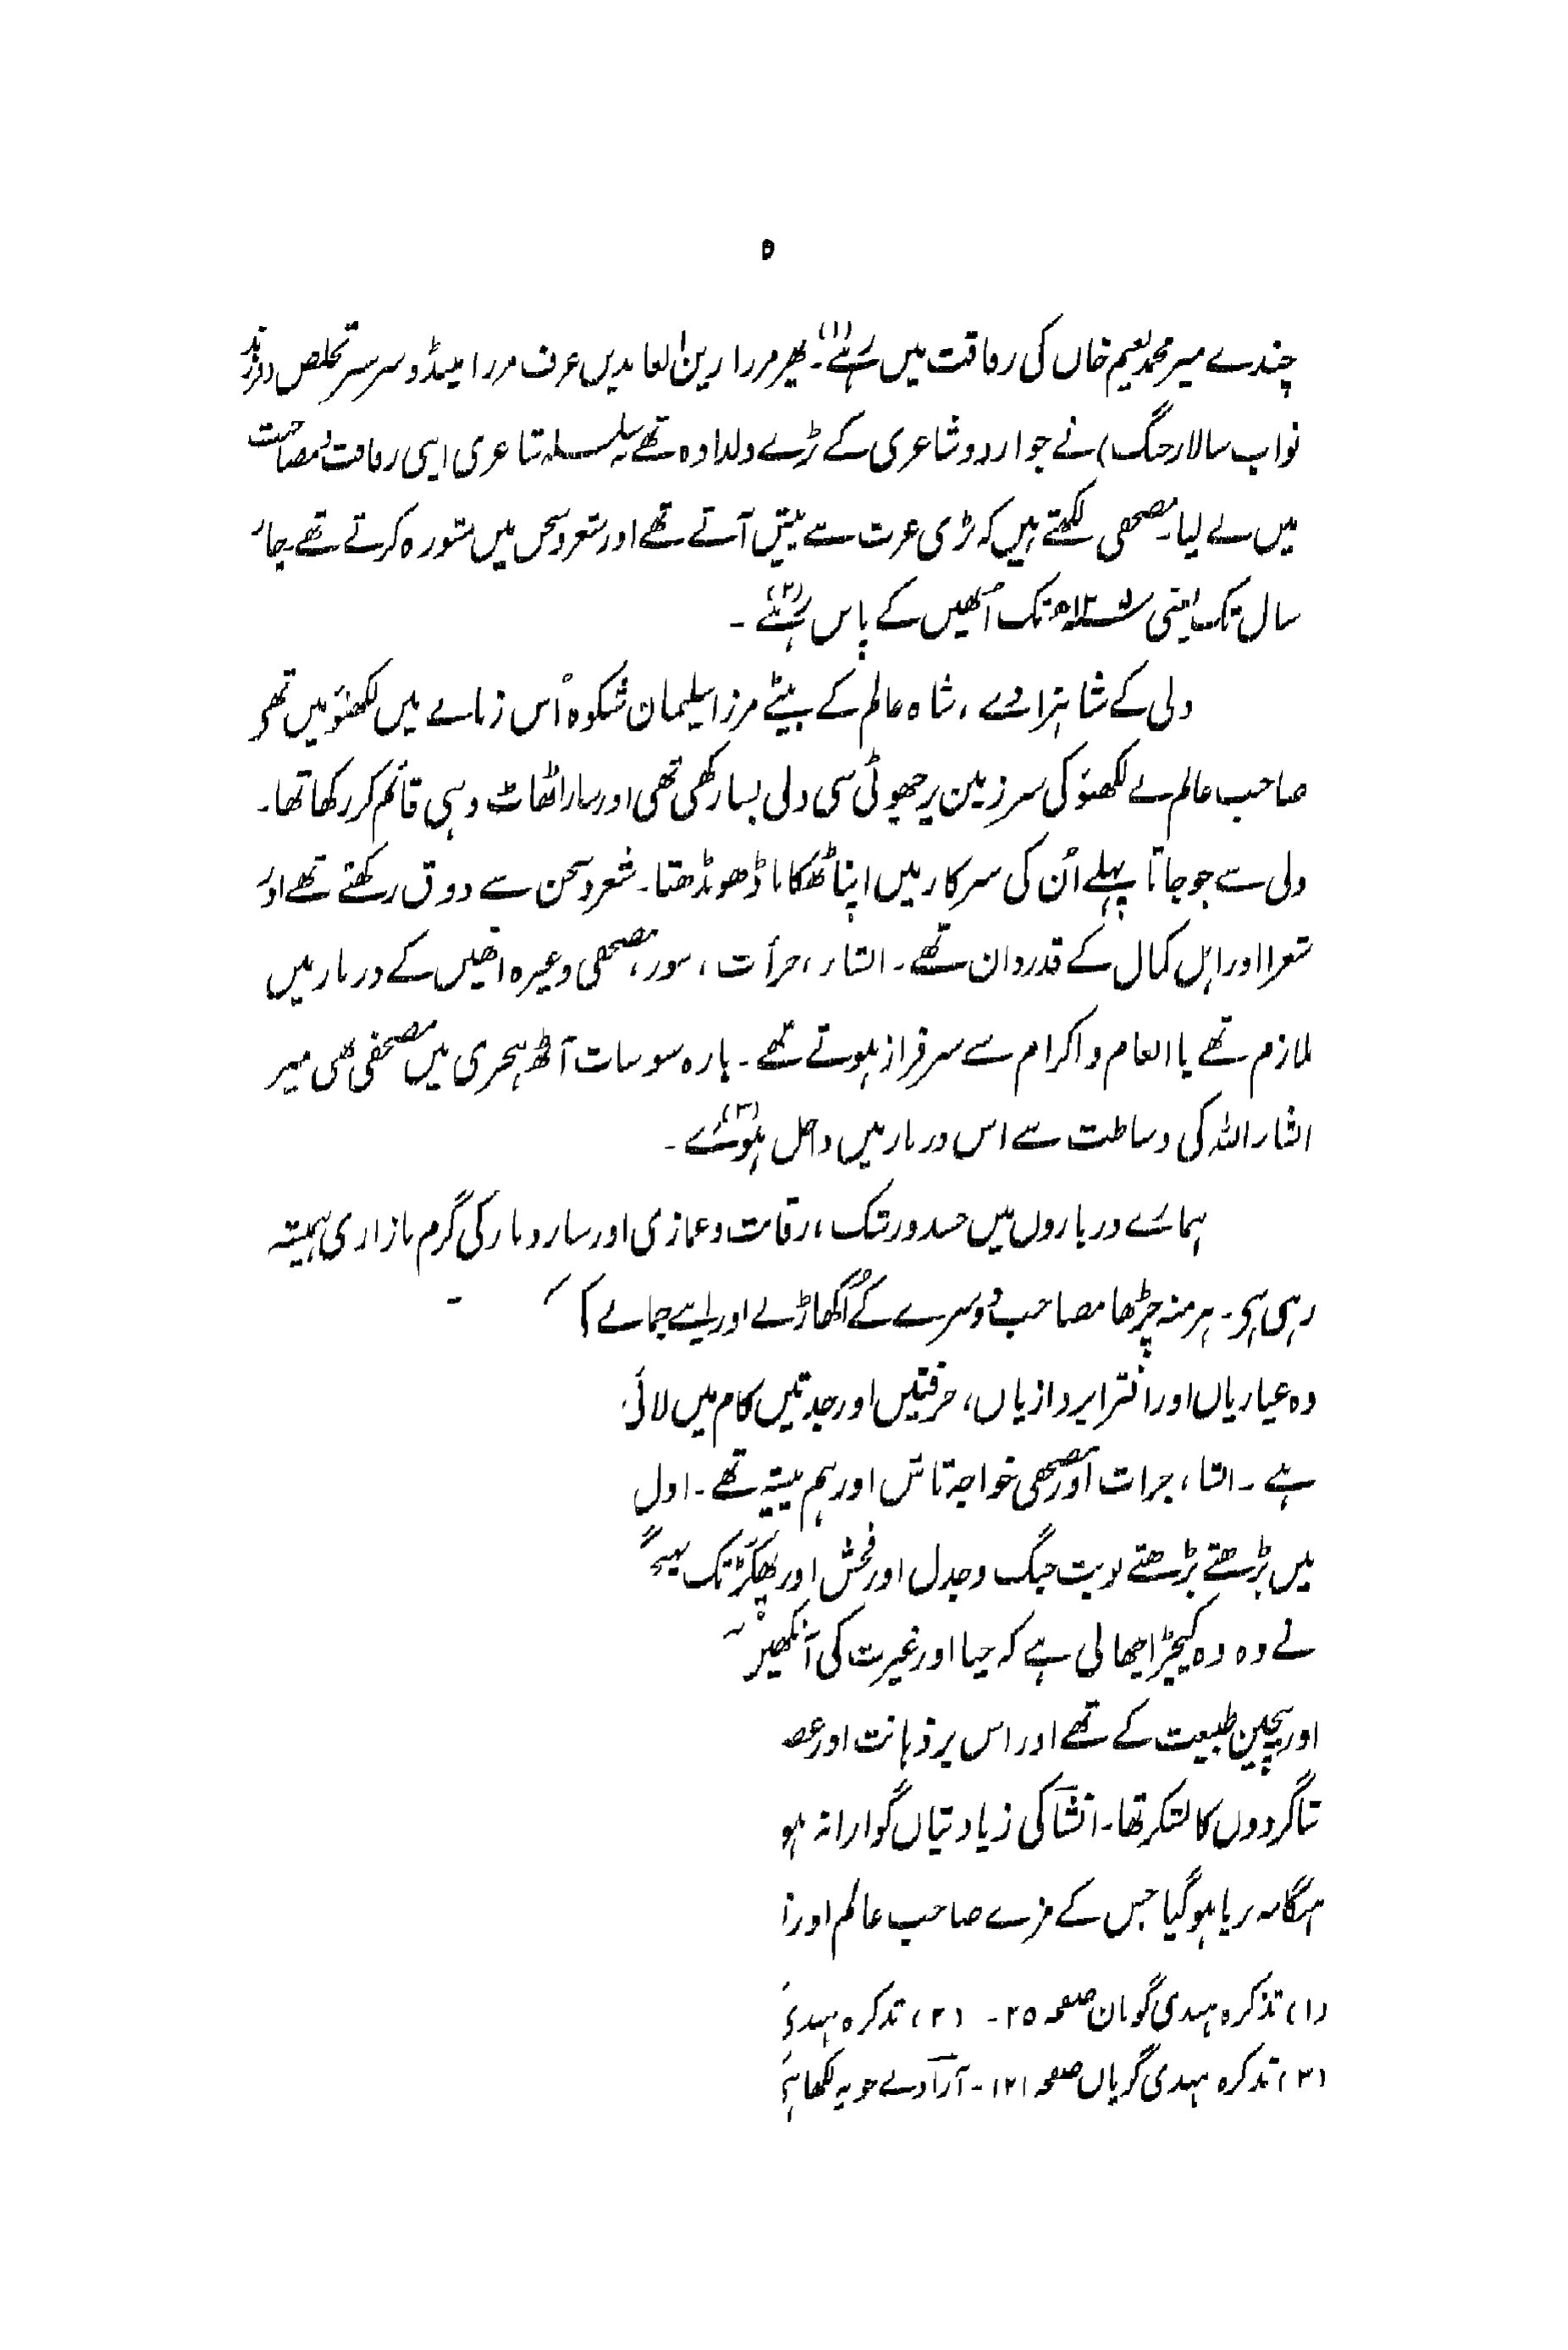 ۵
چندے میر محمد نعیم خاں کی رفاقت میں رہے(۱)۔ پھر مرزا زین العابدین عرف مرزا مینڈو سرسبز تخلص (فرزند
نواب سالار جنگ) نے جو اردو شاعری کے بڑے دلدادہ تھے بہ سلسلہ شاعری اپنی رفاقت و مصاحبت
میں لے لیا۔ مصحفی لکھتے ہیں کہ بڑی عزت سے پیش آتے تھے اور شعر و سخن میں مشورہ کرتے تھے۔ چار
سال تک یعنی تک اُنھیں کے پاس رہے(۲)۔
دلی کے شاہزادے، شاہ عالم کے بیٹے مرزا سلیمان شکوہ اُس زمانے میں لکھنؤ میں تھے
صاحب عالم نے لکھنؤ کی سرزمین پر چھوٹی سی دلی بسا رکھی تھی اور سارا ٹھاٹ وہی قائم کر رکھا تھا۔
دلی سے جو جاتا پہلے اُن کی سرکار میں اپنا ٹھکانا ڈھونڈھتا۔ شعر و سخن سے ذوق رکھتے تھے اور
شعرا اور اہل کمال کے قدردان تھے۔ انشاء، جرأت، سوز، مصحفی وغیرہ انھیں کے دربار میں
ملازم تھے یا انعام و اکرام سے سرفراز ہوتے تھے۔ بارہ سو سات آٹھ ہجری میں مصحفی بھی میر
انشاء اللہ کی وساطت سے اس دربار میں داخل ہوئے(۳)۔
ہمارے درباروں میں حسد و رشک، رقابت و غمازی اور ساز و باز کی گرم بازاری ہمیشہ
رہی ہے۔ ہر منہ چڑھا مصاحب دوسرے کے اُکھاڑنے اور اپنے جمانے کے
وہ عیاریاں اور افترا پردازیاں، حرفتیں اور جدتیں کام میں لائی
ہے۔ انشا، جرات اور مصحفی خواجہ تاش اور ہم پیشہ تھے۔ اول
میں بڑھتے بڑھتے نوبت جنگ و جدل اور فحش اور پھکڑ تک پہنچ گ
نے وہ وہ کیچڑ اچھالی ہے کہ حیا اور غیرت کی آنکھیں
اور بیچین طبیعت کے تھے اور اس پر ذہانت اور
شاگردوں کا لشکر تھا۔ انشا کی زیادتیاں گوارا نہ ہو
ہنگامہ برپا ہو گیا جس کے مزے صاحب عالم اور
(۱) تذکرہ ہندی گویان صفحہ ۲۵۔ (۲) تذکرہ ہندی
(۳) تذکرہ ہندی گویاں صفحہ ۱۲۱۔ آزاد نے جو یہ لکھا ہے